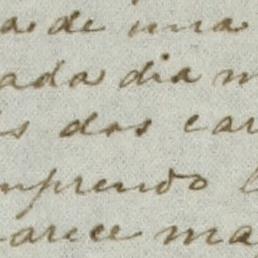 a de una
ada dia m
is dos car
mprendo l
arece ma